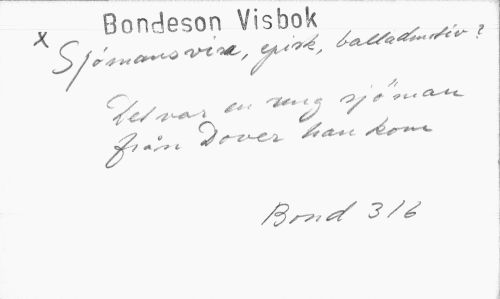 Bondeson Visbok
x Sjömansvisa, episk, balladmotiv?
Det var en ung sjöman
från Dover han kom
Bond 316